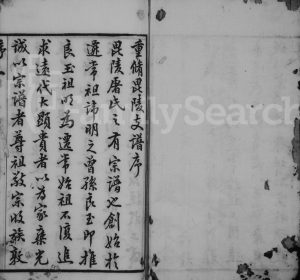 重脩毘陵支譜序
毘陵屠氏之有宗譜也創始於
遷常祖諱明之曾孫良玉即推
良玉祖明為遷常始祖不復追
求遠代大顯貴者以為家乘光
誠以宗譜者尊祖敬宗收族敦
序
FamilySearch